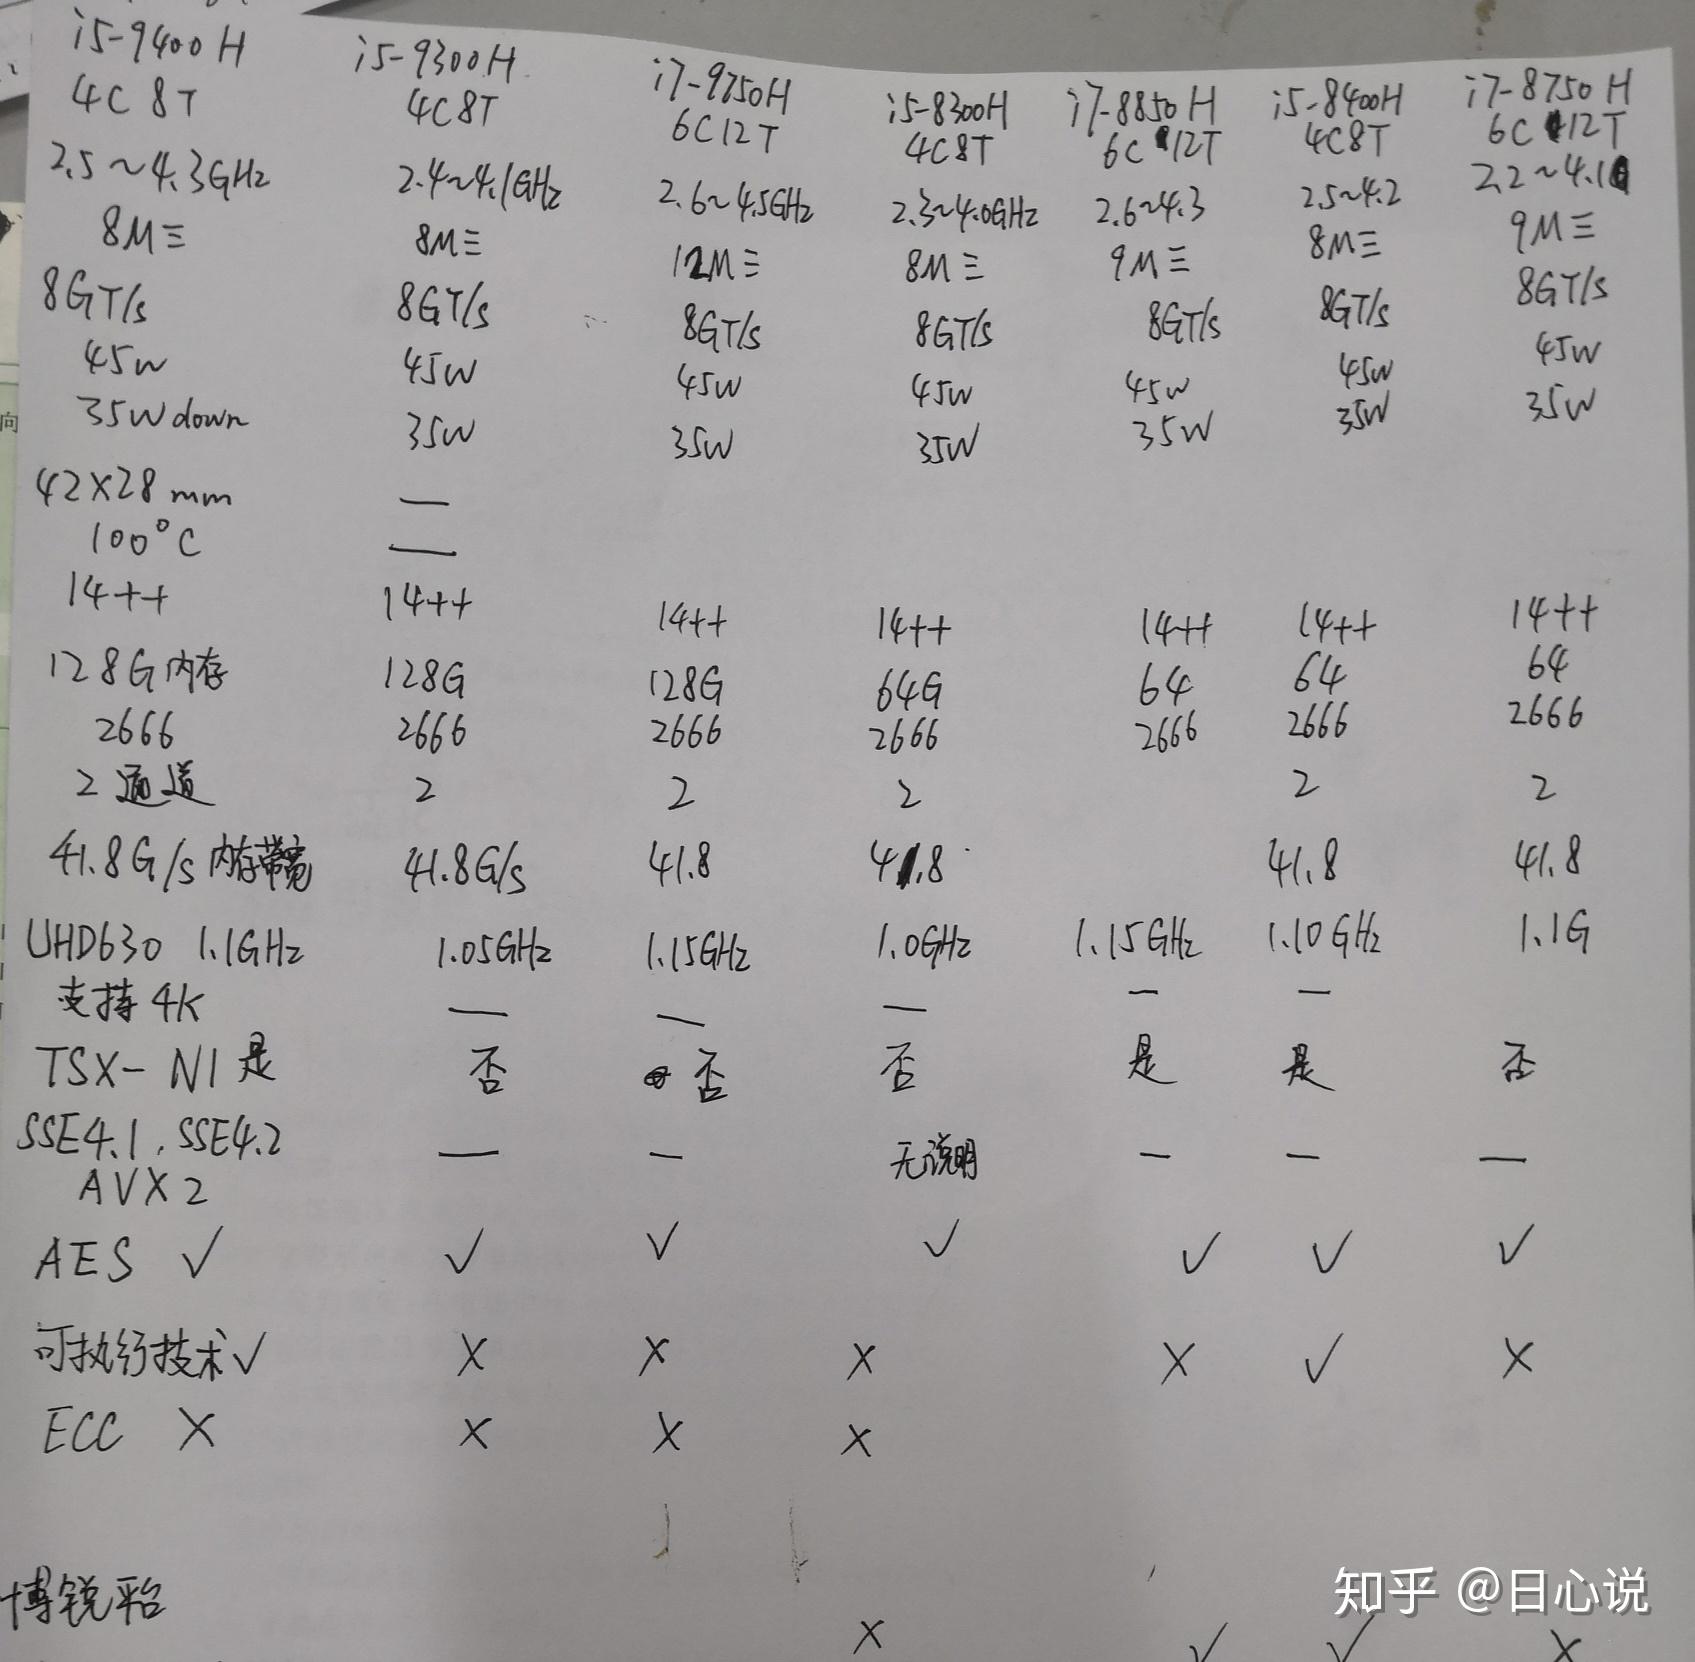 i5-9400H i5-9300H i7-9750H i5-8300H i7-8850H i5-8400H i7-8750H
4C 8T 4C8T 6C12T 4C8T 6C 12T 4C8T 6C 12T
2.5~4.3GHz 2.4~4.1GHz 2.6~4.5GHz 2.3~4.0GHz 2.6~4.3 2.5~4.2 2.2~4.1
8M三 8M三 12M三 8M三 9M三 8M三 9M三
8GT/s 8GT/s 8GT/s 8GT/s 8GT/s 8GT/s 8GT/s
45W 45W 45W 45W 45W 45W 45W
35W down 35W 35W 35W 35W 35W 35W
42X28mm —
100°C —
14++ 14++ 14++ 14++ 14++ 14++ 14++
128G内存 128G 128G 64G 64 64 64
2666 2666 2666 2666 2666 2666 2666
2通道 2 2 2 2 2
41.8G/s内存带宽 41.8G/s 41.8 41.8 41.8 41.8
UHD630 1.1GHz 1.05GHz 1.15GHz 1.0GHz 1.15GHz 1.10GHz 1.1G
支持4K — — — — —
TSX-NI 是 否 否 否 是 是 否
SSE4.1, SSE4.2 — — 无说明 — — —
AVX2
AES ✓ ✓ ✓ ✓ ✓ ✓ ✓
可执行技术✓ X X X X ✓ X
ECC X X X X
博锐平台
X ✓ ✓ X
知乎 @日心说